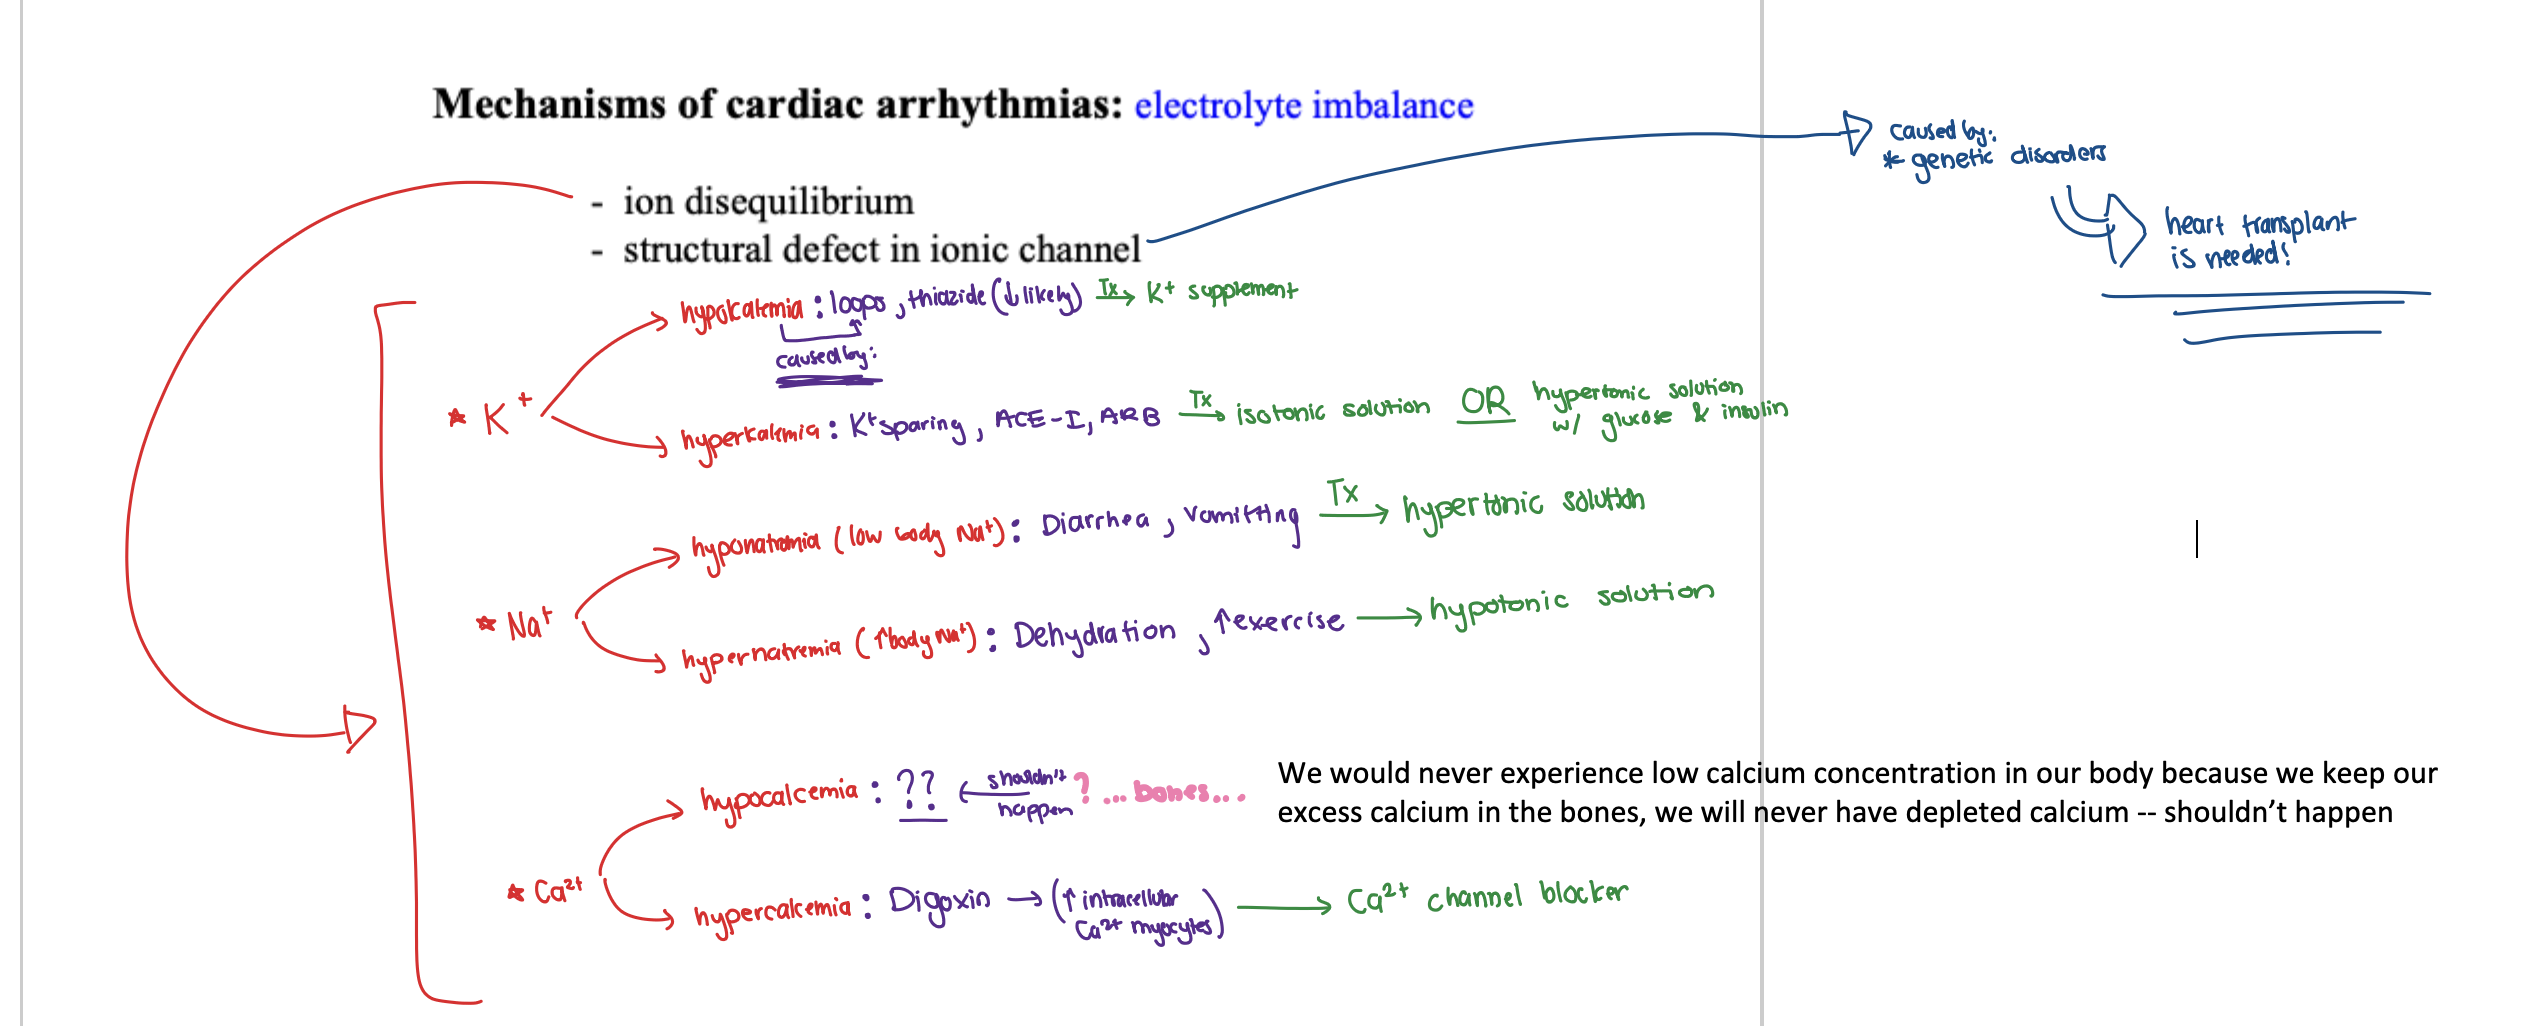 Mechanisms of cardiac arrhythmias: electrolyte imbalance
caused by:
* genetic disorders
heart transplant
is needed!
- ion disequilibrium
- structural defect in ionic channel
* K⁺
hypokalemia : loops, thiazide (↓ likely) Tx→ K⁺ supplement
caused by:
hyperkalemia : K⁺ sparing, ACE-I, ARB Tx→ isotonic solution OR hypertonic solution
w/ glucose & insulin
* Na⁺
hyponatremia (low body Na⁺) : Diarrhea, vomitting Tx→ hypertonic solution
hypernatremia (↑body Na⁺) : Dehydration, ↑exercise → hypotonic solution
* Ca²⁺
hypocalcemia : ?? ← shouldn't happen ? ... bones...
We would never experience low calcium concentration in our body because we keep our
excess calcium in the bones, we will never have depleted calcium -- shouldn't happen
hypercalcemia : Digoxin → (↑ intracellular
Ca²⁺ myocytes) → Ca²⁺ channel blocker